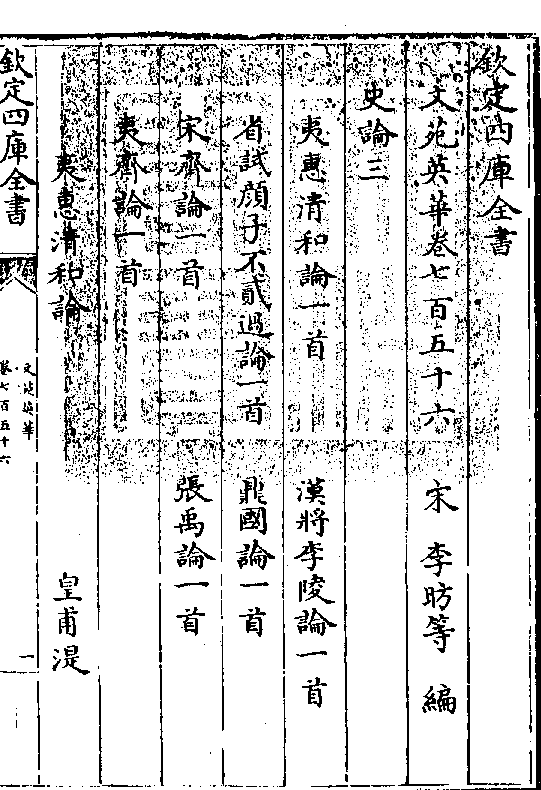 欽定四庫全書
文苑英華卷七百五十六
宋 李昉等 編
史論三
夷惠清和論一首
漢將李陵論一首
省試顔子不貳過論一首
鼎國論一首
宋齊論一首
張禹論一首
夷齊論一首
夷惠清和論
皇甫湜
欽定四庫全書
文苑英華
卷七百五十六
一